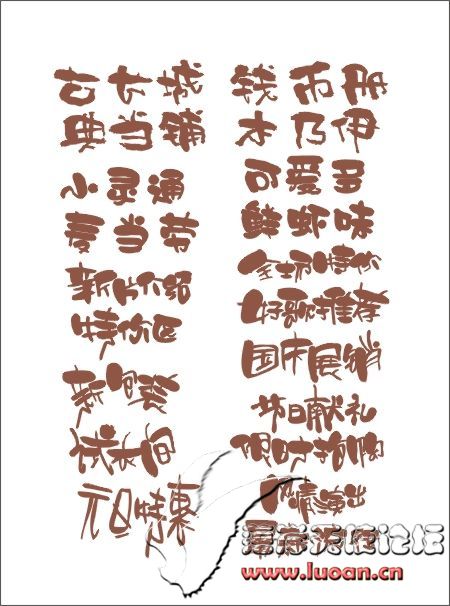 古长城
典当铺
小灵通
麦当劳
新片介绍
特价区
新包装
试衣间
元旦特惠
钱币册
木乃伊
可爱多
鲜虾味
全场特价
好歌推荐
国庆展销
节日献礼
限时抢购
情演出
天使论坛
www.luoan.cn